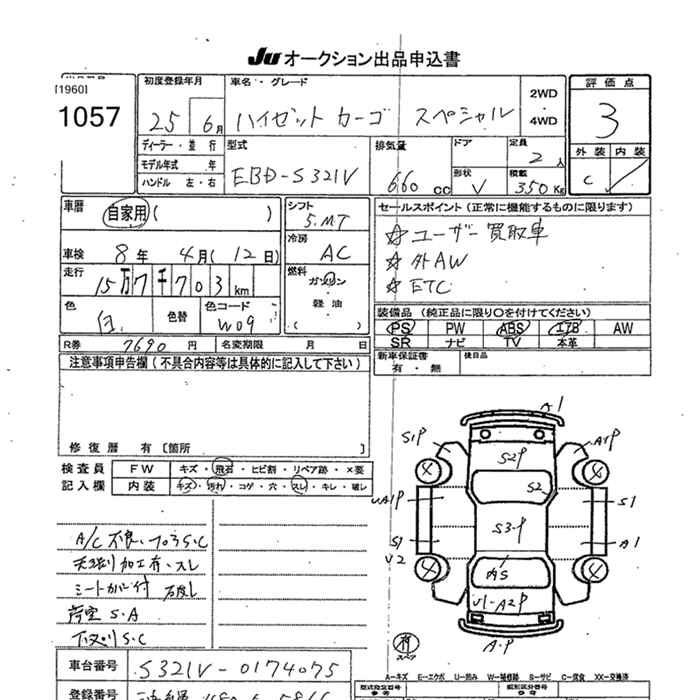 JU オークション出品申込書
[1960]
1057
初度登録年月
25 6月
車名・グレード
ハイゼット カーゴ スペシャル
2WD
4WD
評価点
3
外装 内装
C
ディーラー・並行
モデル年式 年
ハンドル 左・右
型式
EBD-S321V
排気量
660 cc
ドア
形状
V
定員
2人
積載
350 Kg
車歴
自家用( )
車検 8年 4月(12日)
走行 15万7千703 km
色
白
色替
色コード
W09
R券 7690 名変期限 月 日
シフト
5.MT
冷房
AC
燃料
ガソリン
軽油
( )
セールスポイント(正常に機能するものに限ります)
☆ユーザー買取車
☆外AW
☆ETC
装備品 (純正品に限り○を付けてください)
PS PW ABS エアB AW
SR ナビ TV 本革
新車保証書
有・無
後日品
注意事項申告欄(不具合内容等は具体的に記入して下さい)
修復歴 有[箇所 ]
検査員
記入欄
FW キズ・飛石・ヒビ割・リペア跡・×要
内装 キズ・汚れ・コゲ・穴・スレ・キレ・破レ
A/C不良、フロアS.C
天張り加工有・スレ
シートカバー付
荷室S.A
下廻りS.C
A1
S1P
A1P
S2P
4
4
S2
UA1P
S1
S3P
S1
A1
U2
4
4
内S
U1-A2P
A・P
車台番号 S321V-0174075
登録番号
A-キズ E-エクボ U-凹み W-補修跡 S-サビ C-腐食 XX-交換済
型式指定番号
類別区分番号